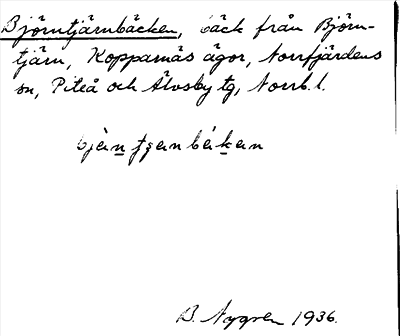 Björntjärnbäcken, bäck från Björn-
tjärn, Kopparnäs ägor, Norrfjärdens
sn, Piteå och Älvsby tg, Norrb. l.
B. Nygren 1936.